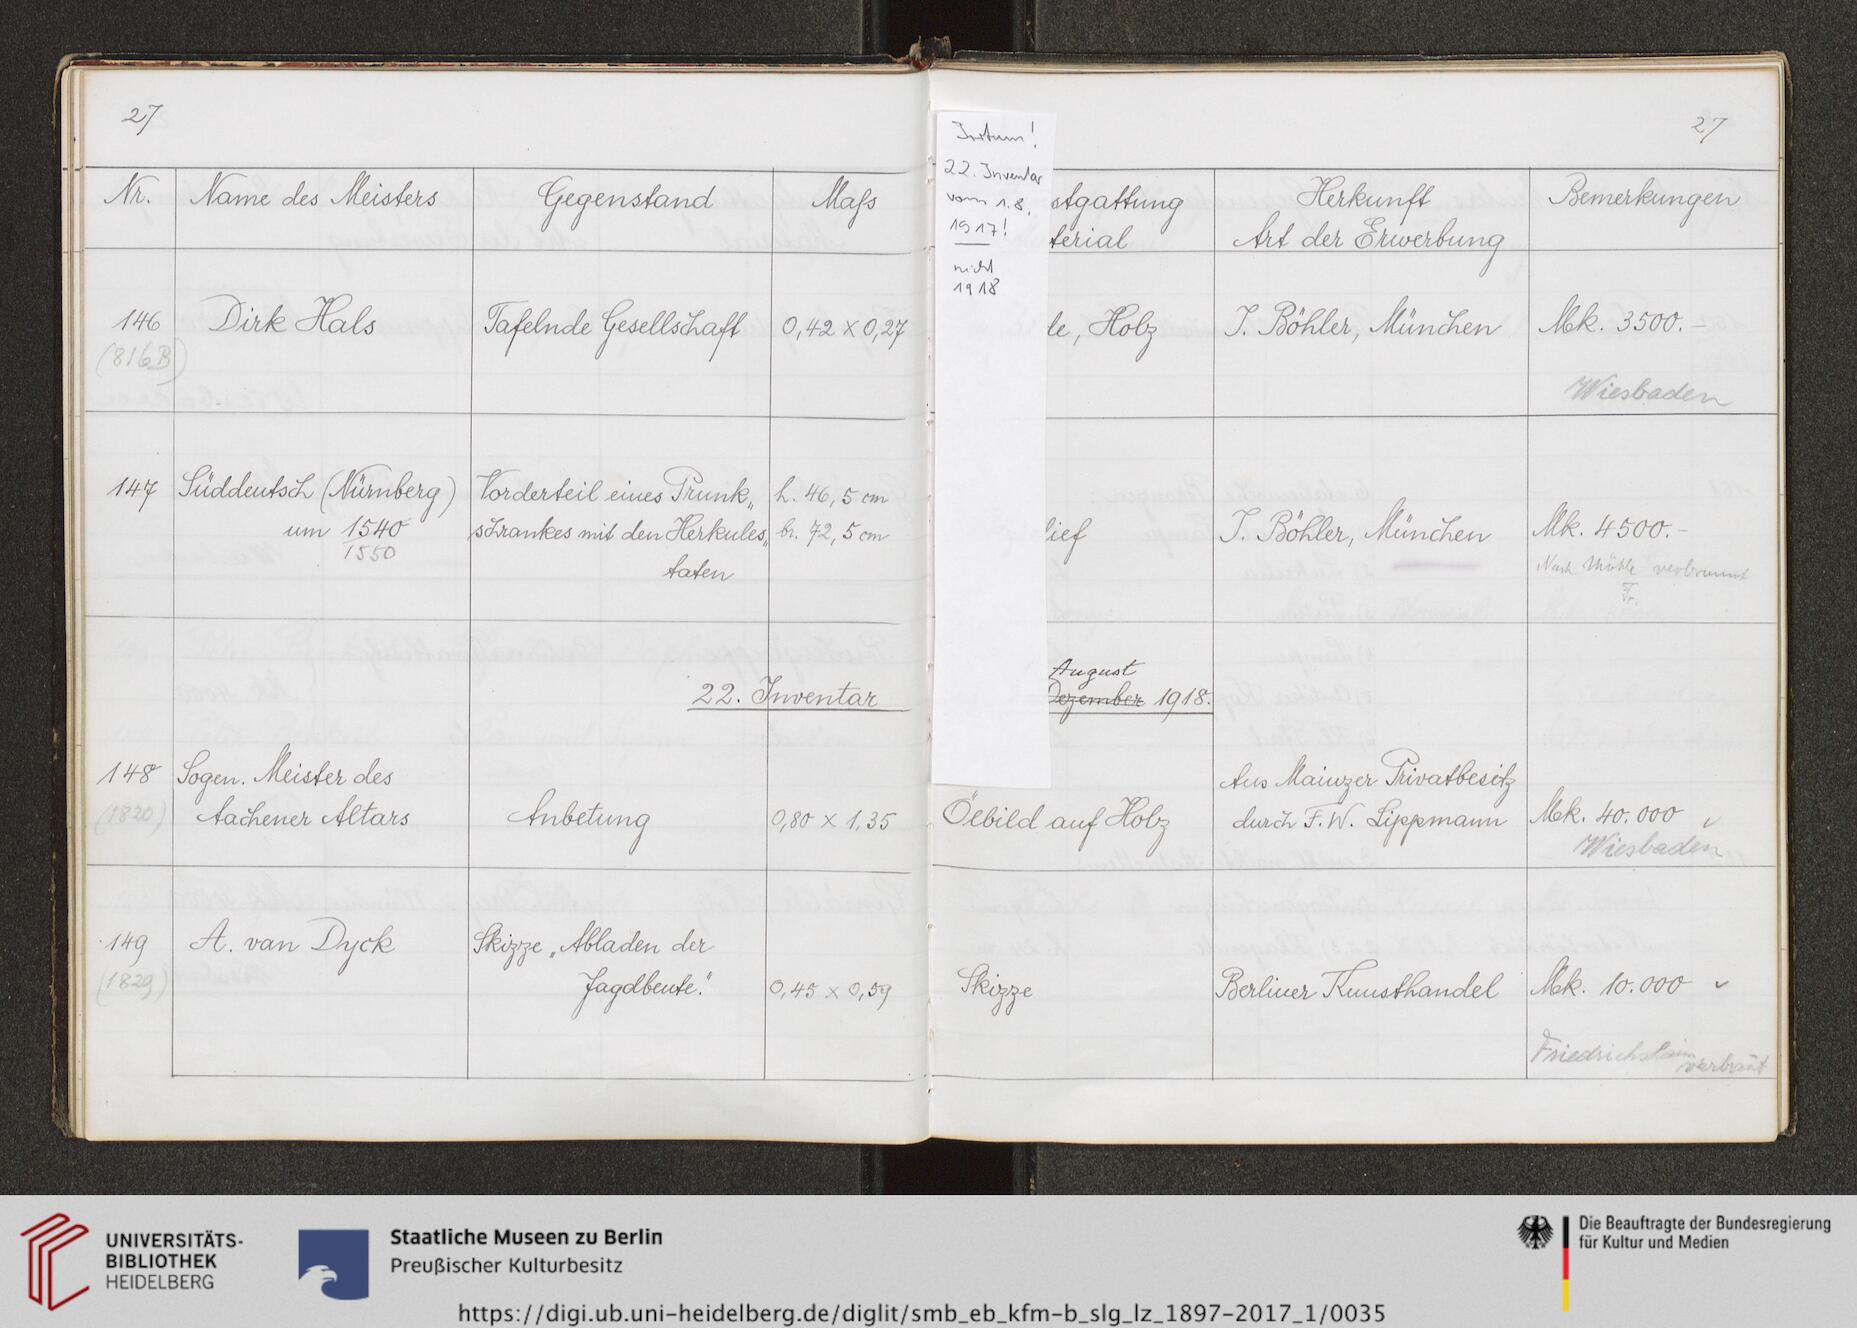 27
27
Irrtum!
22. Inventar
vom 1.8.
1917!
nicht
1918
Nr. Name des Meisters Gegenstand Maſs stgattung Herkunft Bemerkungen
terial Art der Erwerbung
146 Dirk Hals Tafelnde Gesellschaft 0,42 x 0,27 le, Holz J. Böhler, München Mk. 3500.–
(816B)
Wiesbaden
147 Süddeutsch (Nürnberg) Vorderteil eines Prunk„ h. 46,5 cm
um 1540 schrankes mit den Herkules„ br. 72,5 cm lief J. Böhler, München Mk. 4500.–
1550 taten Nach Mühle verbrannt
Fr.
August
22. Inventar Dezember 1918.
148 Sogen. Meister des Aus Mainzer Privatbesitz
(1820) Aachener Altars Anbetung 0,80 x 1,35 Ölbild auf Holz durch F. W. Lippmann Mk. 40.000 ✓
Wiesbaden
149 A. van Dyck Skizze „Abladen der
(1829) Jagdbeute." 0,45 x 0,59 Skizze Berliner Kunsthandel Mk. 10.000 ✓
Friedrichshain
UNIVERSITÄTS-
BIBLIOTHEK
HEIDELBERG
Staatliche Museen zu Berlin
Preußischer Kulturbesitz
Die Beauftragte der Bundesregierung
für Kultur und Medien
https://digi.ub.uni-heidelberg.de/diglit/smb_eb_kfm-b_slg_lz_1897-2017_1/0035